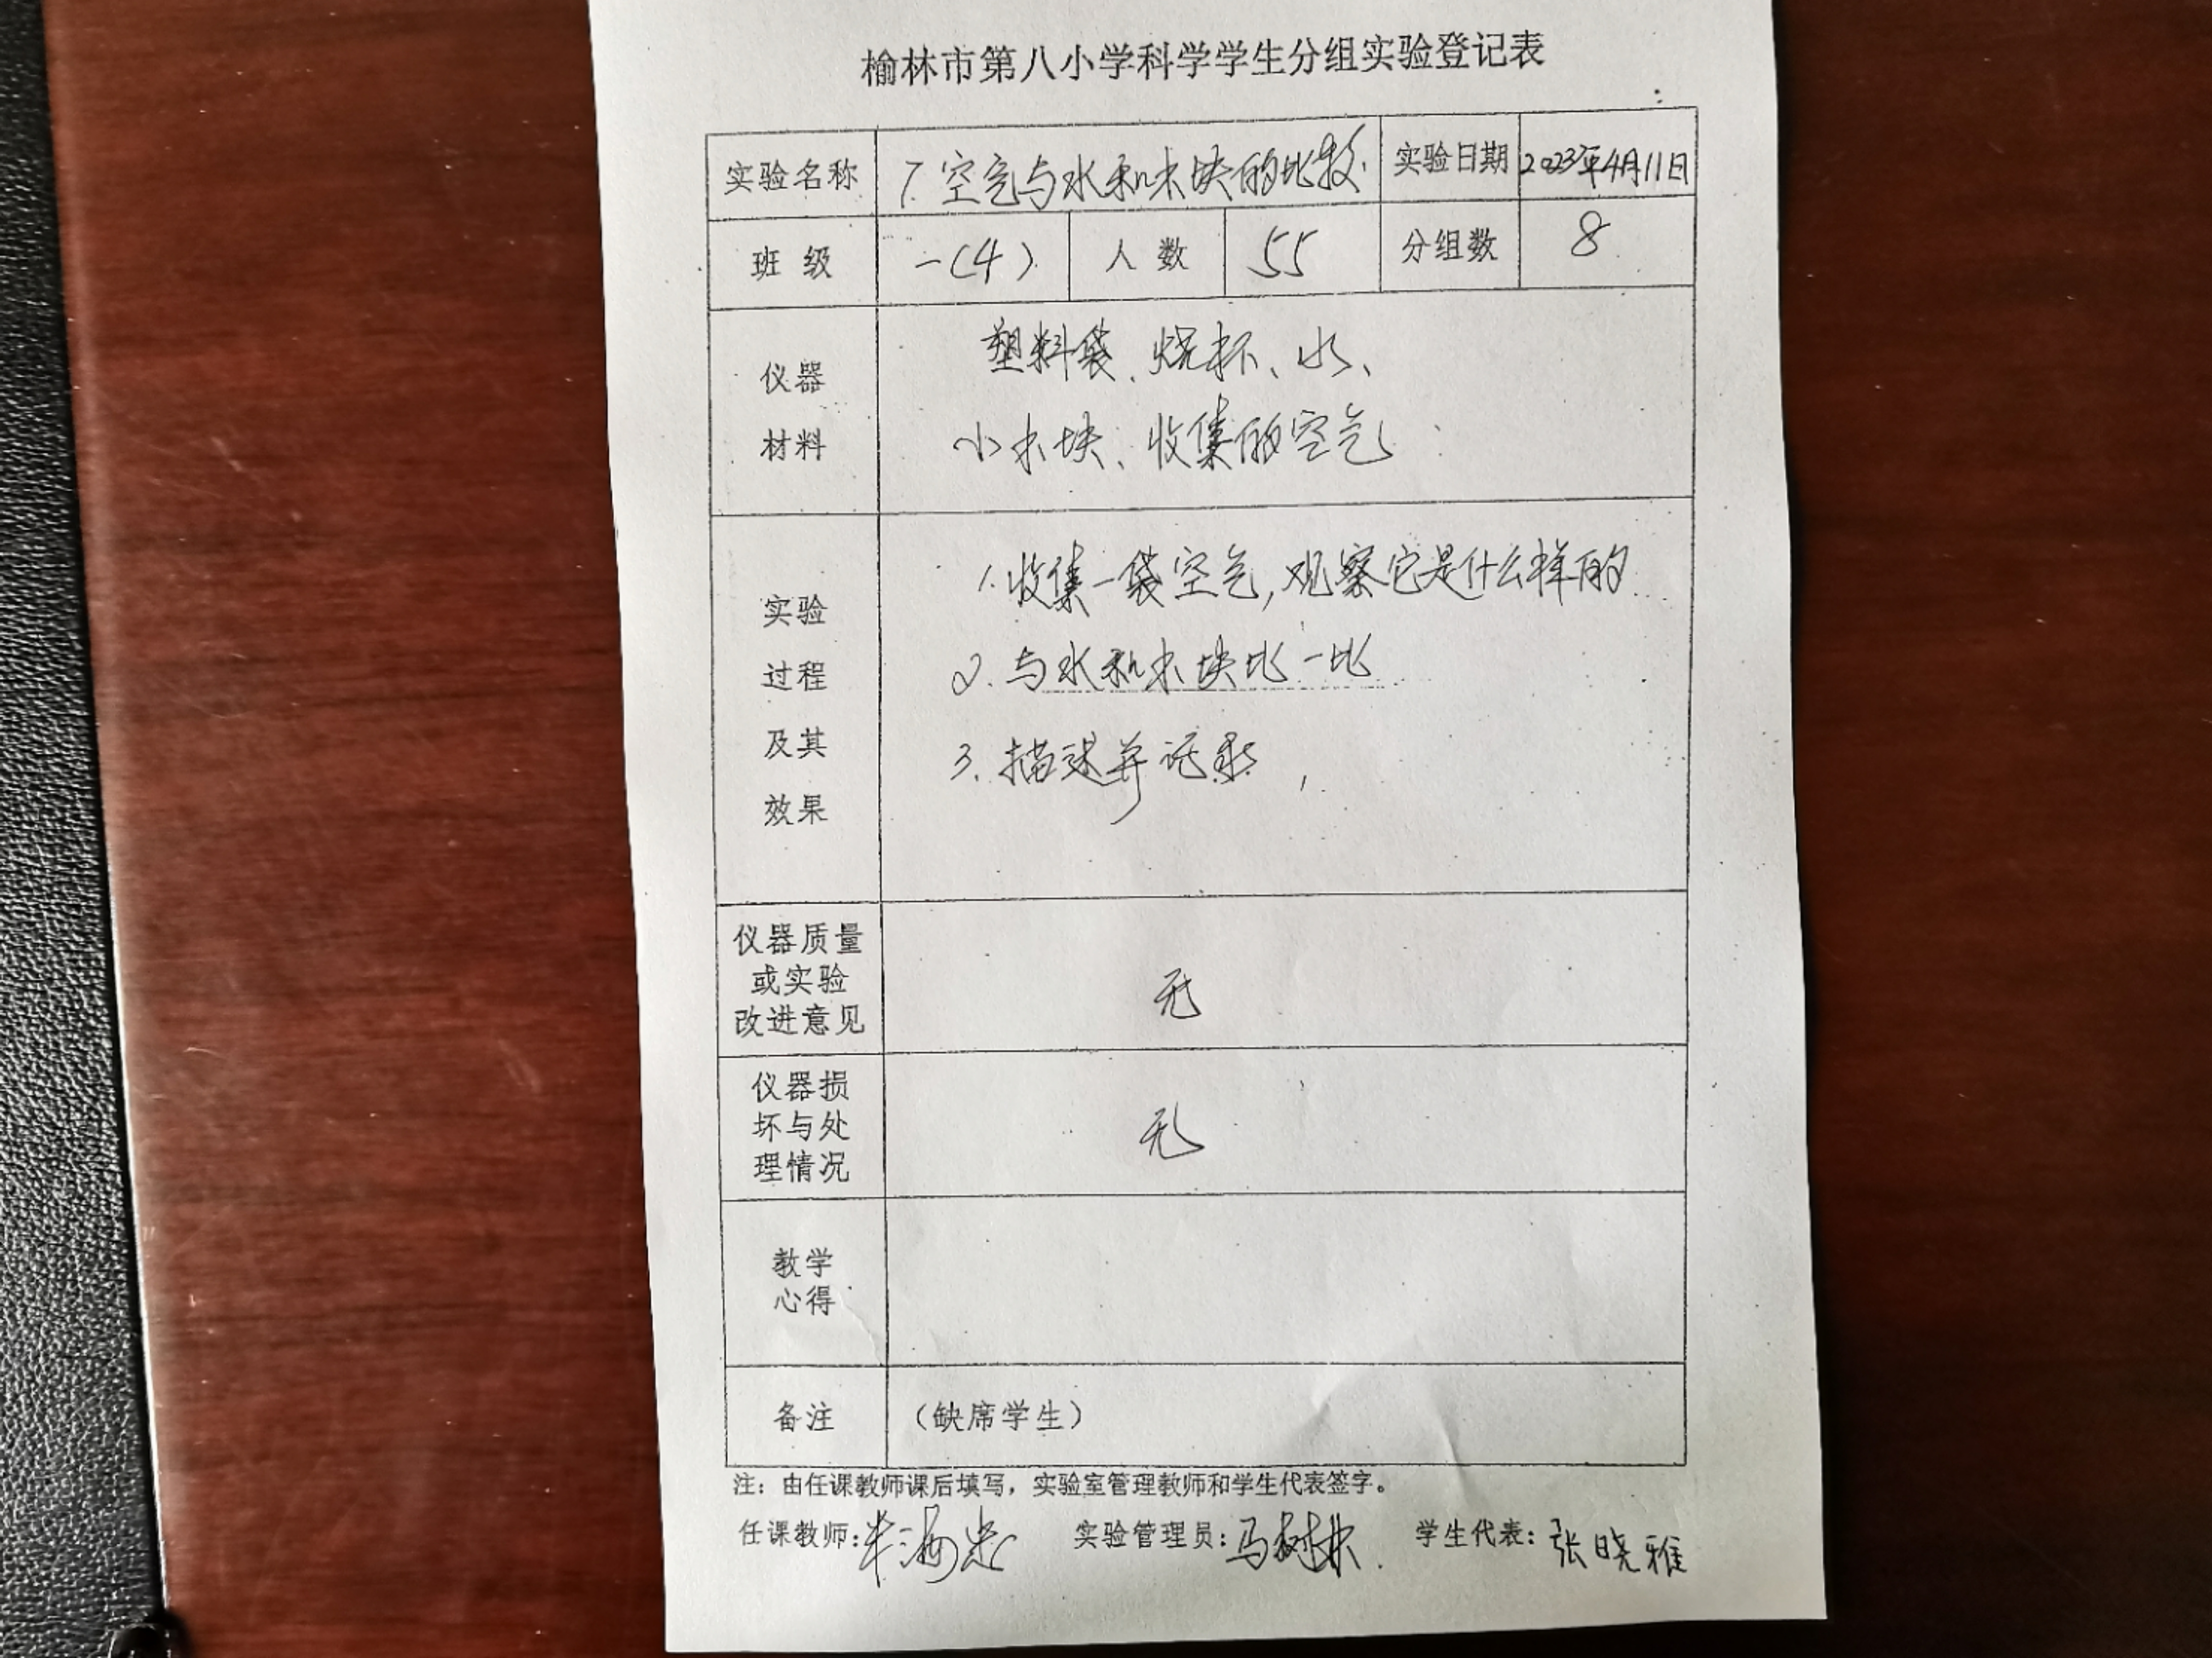 榆林市第八小学科学学生分组实验登记表
实验名称 7.空气与水和木块的比较. 实验日期 2023年4月11日
班 级 一(4) 人 数 55 分组数 8
仪器
材料
塑料袋、烧杯、水、
小木块、收集的空气
实验
过程
及其
效果
1.收集一袋空气,观察它是什么样的
2.与水和木块比一比
3.描述并记录
仪器质量
或实验
改进意见
无
仪器损
坏与处
理情况
无
教学
心得
备注 (缺席学生)
注：由任课教师课后填写，实验室管理教师和学生代表签字。
任课教师: 实验管理员:马树林 学生代表:张晓雅